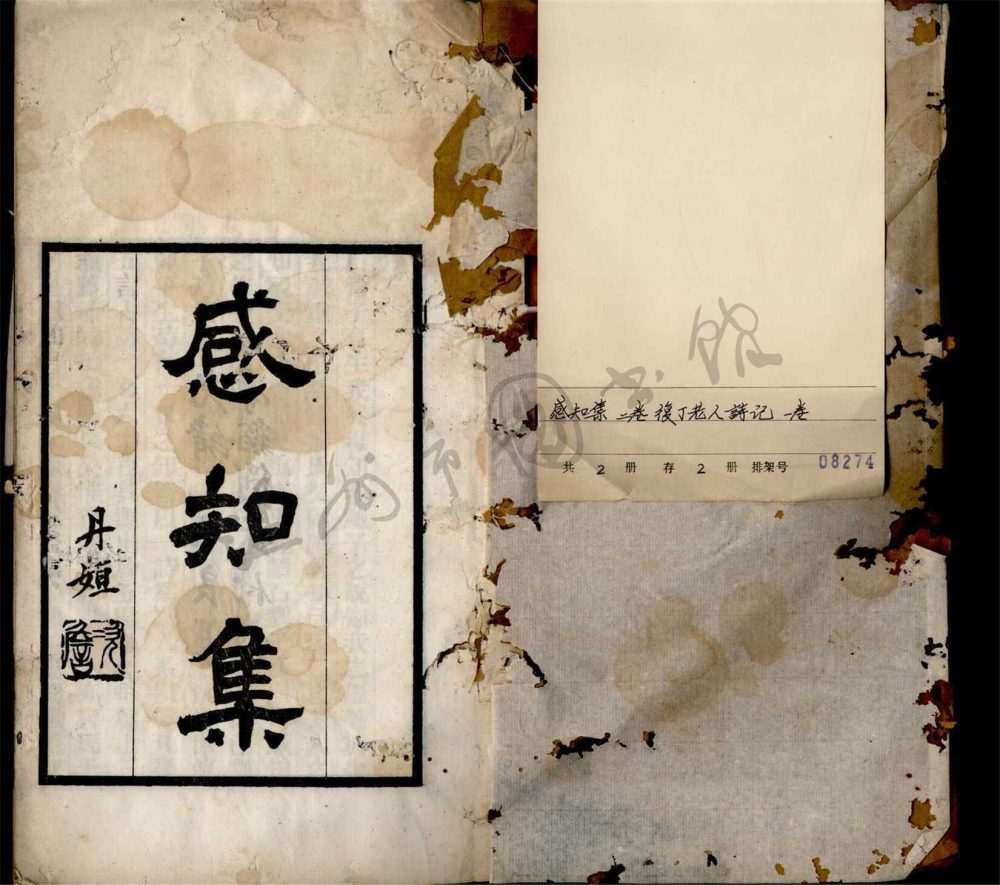 感知集
丹姮
感知集 二卷 復丁老人詩记 一卷
共 2 册 存 2 册 排架号 08274
温州市图书馆